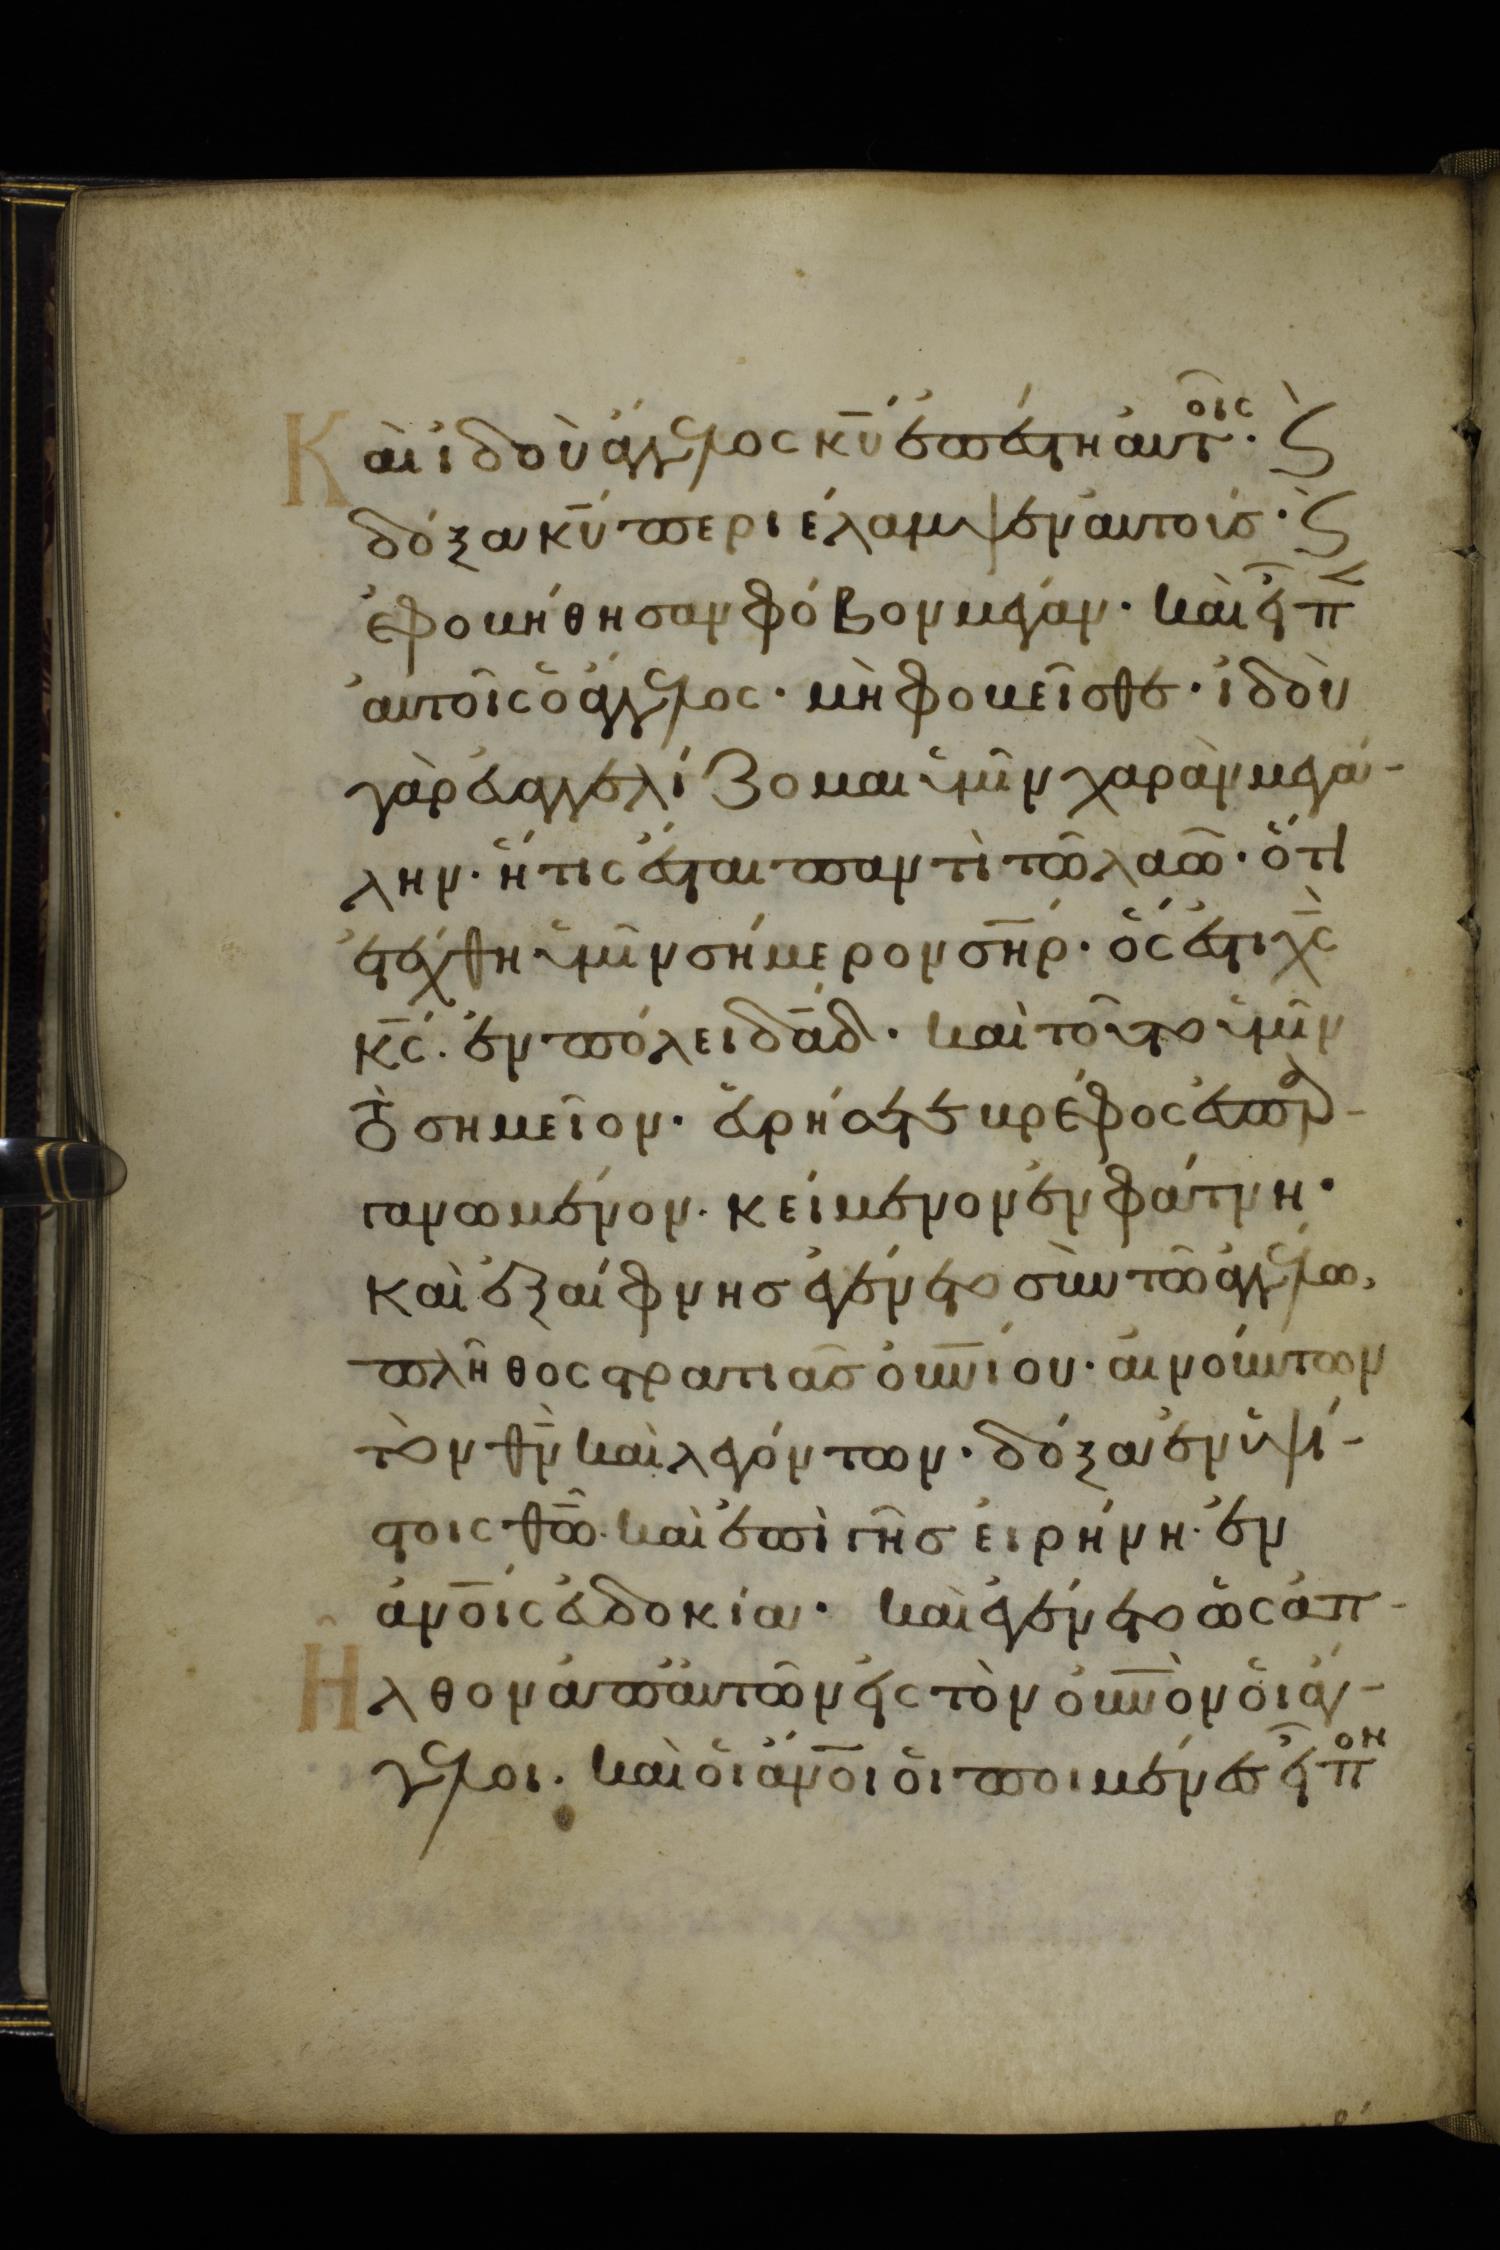 Καὶ ἰδοὺ ἄγγελος κ̅υ̅ ἐπέστη αὐτοῖς· ϗ
δόξα κ̅υ̅ περιέλαμψεν αὐτοῖς· ϗ
ἐφοβήθησαν φόβον μέγαν· καὶ εἶπ
αὐτοῖς ὁ ἄγγελος· μὴ φοβεῖσθε· ἰδοὺ
γὰρ εὐαγγελίζομαι ὑμῖν χαρὰν μεγά-
λην· ἥτις ἔσται παντὶ τῶ λαῶ· ὅτι
ἐτέχθη ὑμῖν σήμερον σ̅η̅ρ̅· ὅς ἐστι χ̅ς̅
κ̅ς̅· ἐν πόλει δ̅α̅δ̅· καὶ τοῦτο ὑμῖν
τὸ σημεῖον· εὑρήσετε βρέφος ἐσπαρ-
γανωμένον· κείμενον ἐν φάτνη·
καὶ ἐξαίφνης ἐγένετο σὺν τῶ ἀγγέλω,
πλῆθος στρατιᾶς ο̅υ̅ν̅ίου· αἰνούντων
τὸν θ̅ν̅ καὶ λεγόντων· δόξα ἐν ὑψί-
στοις θ̅ω̅· καὶ ἐπὶ γῆς εἰρήνη· ἐν
ἀ̅ν̅ο̅ι̅ς εὐδοκία· καὶ ἐγένετο ὡς ἀπ-
Ηλθον ἀπ' αὐτῶν εἰς τὸν ο̅υ̅ν̅ὸν οἱ ἄγ-
γελοι· καὶ οἱ ἄ̅ν̅ο̅ι̅ οἱ ποιμένες εἶπον